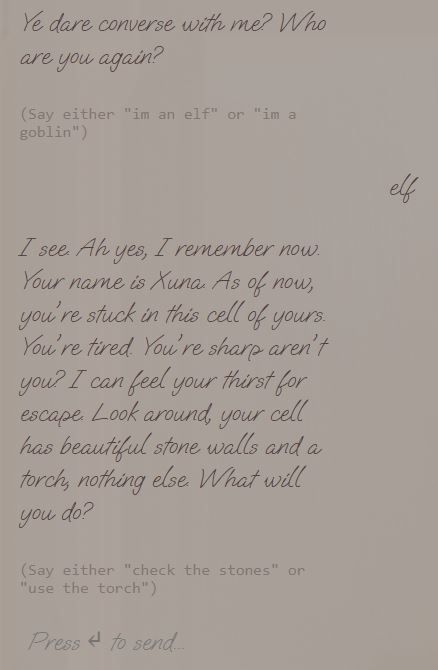 Ye dare converse with me? Who
are you again?
(Say either "im an elf" or "im a
goblin")
elf
I see. Ah yes, I remember now.
Your name is Xuna. As of now,
you're stuck in this cell of yours.
You're tired. You're sharp aren't
you? I can feel your thirst for
escape. Look around, your cell
has beautiful stone walls and a
torch, nothing else. What will
you do?
(Say either "check the stones" or
"use the torch")
Press ↵ to send...